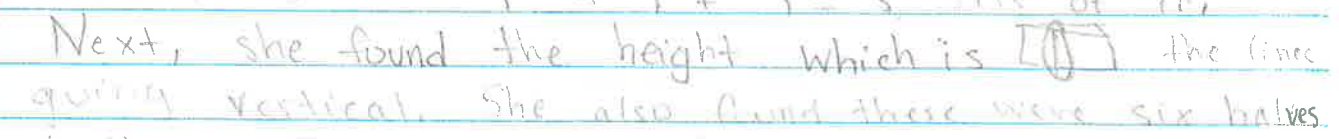 Next, she found the height which is the lines
going vertical. She also found there were six halves